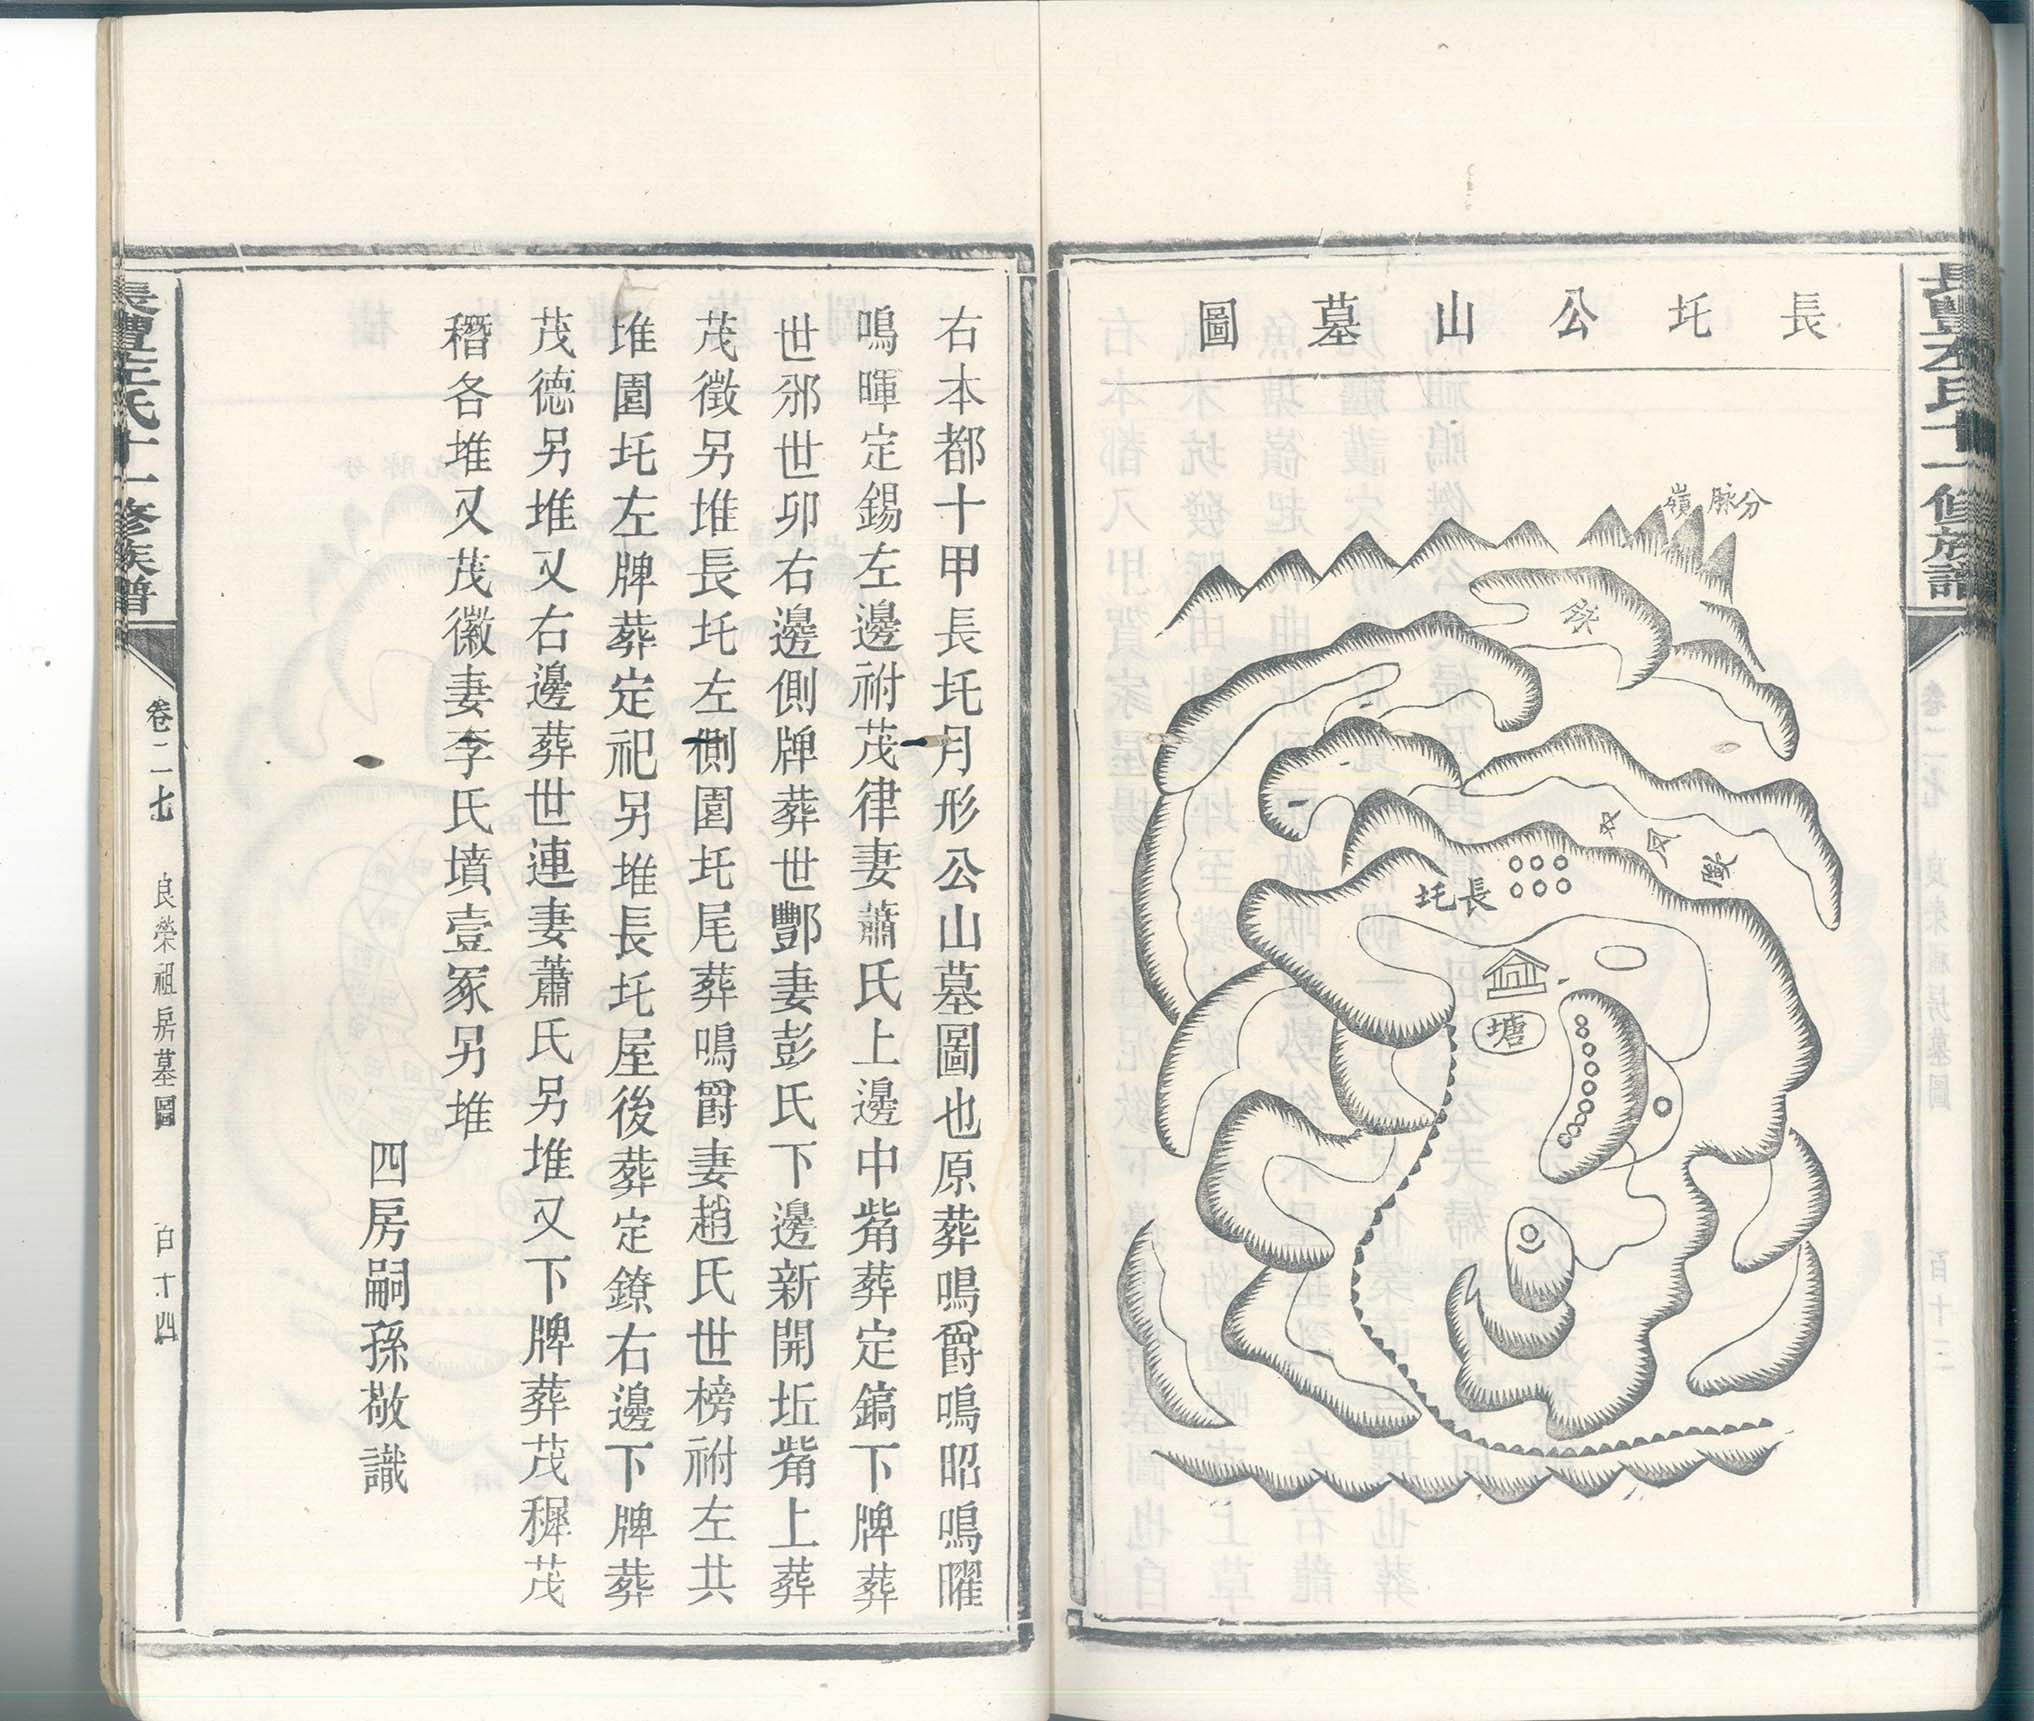 長圫公山墓圖
分脉嶺
長圫
塘
右本都十甲長圫月形公山墓圖也原葬鳴爵鳴昭鳴曜
鳴暉定錫左邊祔茂律妻蕭氏上邊中觜葬定鎬下牌葬
世邠世卯右邊側牌葬世酆妻彭氏下邊新開坵觜上葬
茂徵另堆長圫左側園圫尾葬鳴爵妻趙氏世榜祔左共
堆園圫左牌葬定祀另堆長圫屋後葬定鐐右邊下牌葬
茂德另堆又右邊葬世連妻蕭氏另堆又下牌葬茂穉茂
穭各堆又茂徽妻李氏墳壹冢另堆
四房嗣孫敬識
長豐左氏十一修族譜
卷二七
良榮祖房墓圖
百十四